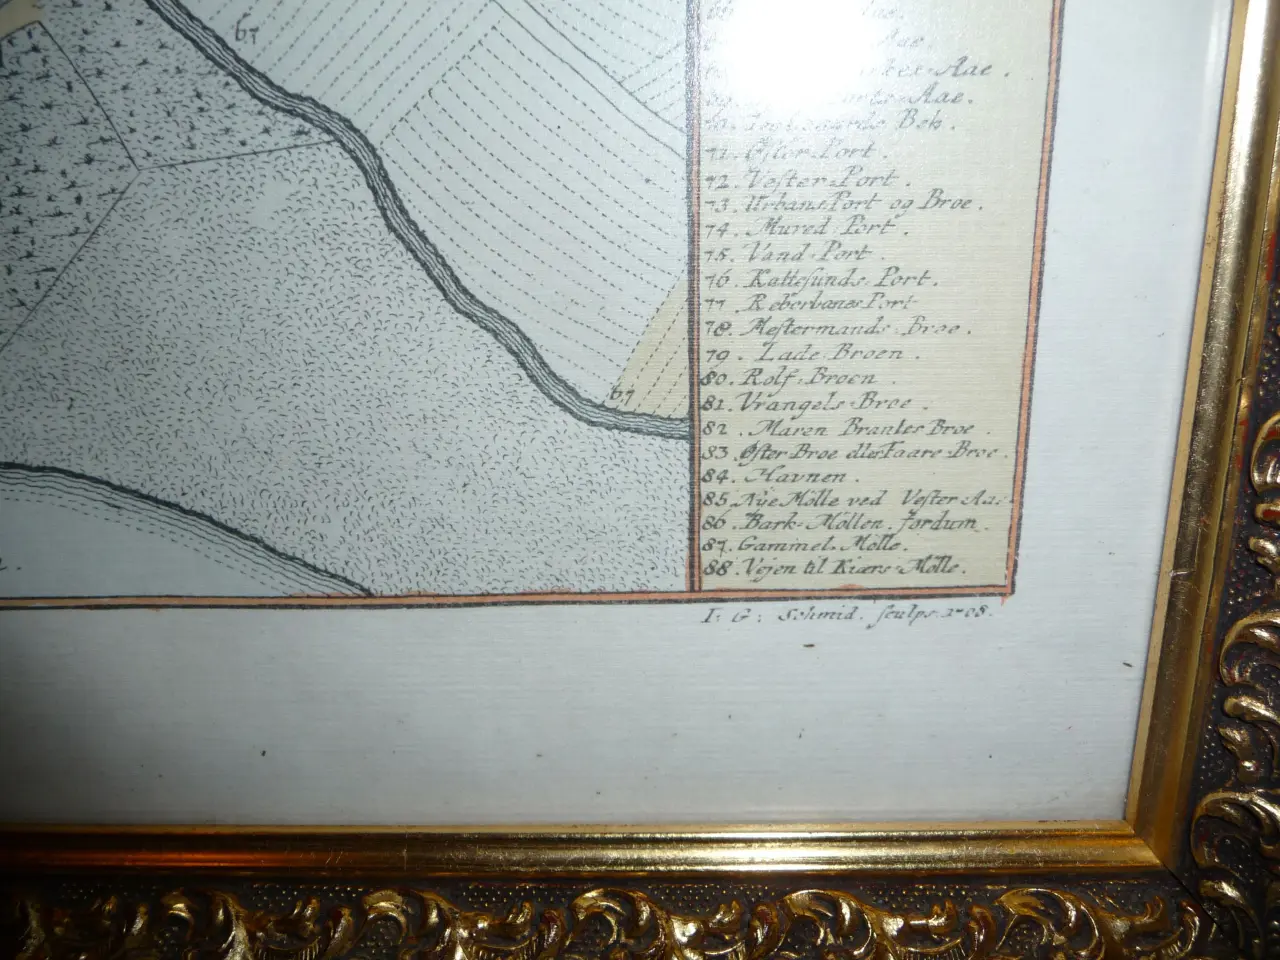 67
Aae.
Aae.
70. Bek.
71. Øster Port.
72. Vester Port.
73. Urbans Port og Broe.
74. Mured Port.
75. Vand Port.
76. Kattesunds Port.
77. Reberbanes Port
78. Mestermands Broe.
79. Lade Broen.
80. Rolf Broen.
81. Vrangels Broe.
67
82. Maren Brantes Broe.
83. Øster Broe eller Taare Broe.
84. Havnen.
85. Nye Mølle ved Vester Aae.
86. Bark Møllen fordum.
87. Gammel Mølle.
88. Vejen til Kiærs Mølle.
I: G: Schmid. sculps.